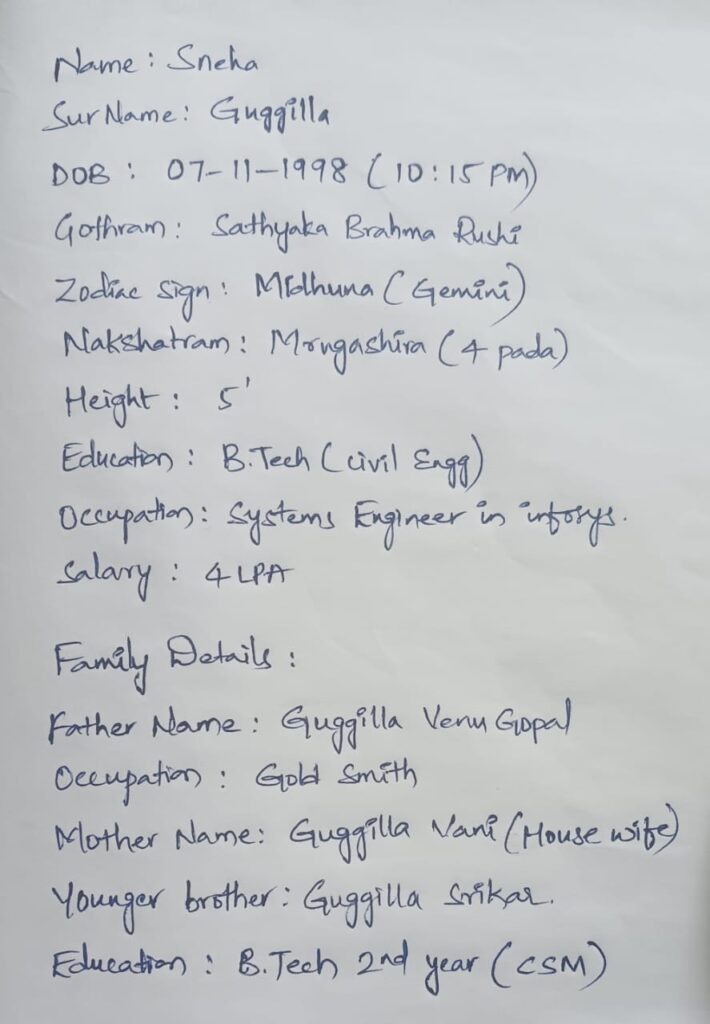 Name : Sneha
SurName : Guggilla
DOB : 07-11-1998 (10:15 PM)
Gothram : Sathyaka Brahma Rushi
Zodiac sign : Midhuna (Gemini)
Nakshatram : Mrugashira (4 pada)
Height : 5'
Education : B.Tech (civil Engg)
Occupation : Systems Engineer in infosys.
Salary : 4 LPA
Family Details :
Father Name : Guggilla Venu Gopal
Occupation : Gold Smith
Mother Name : Guggilla Vani (House wife)
Younger brother : Guggilla Srikar.
Education : B.Tech 2nd year (CSM)